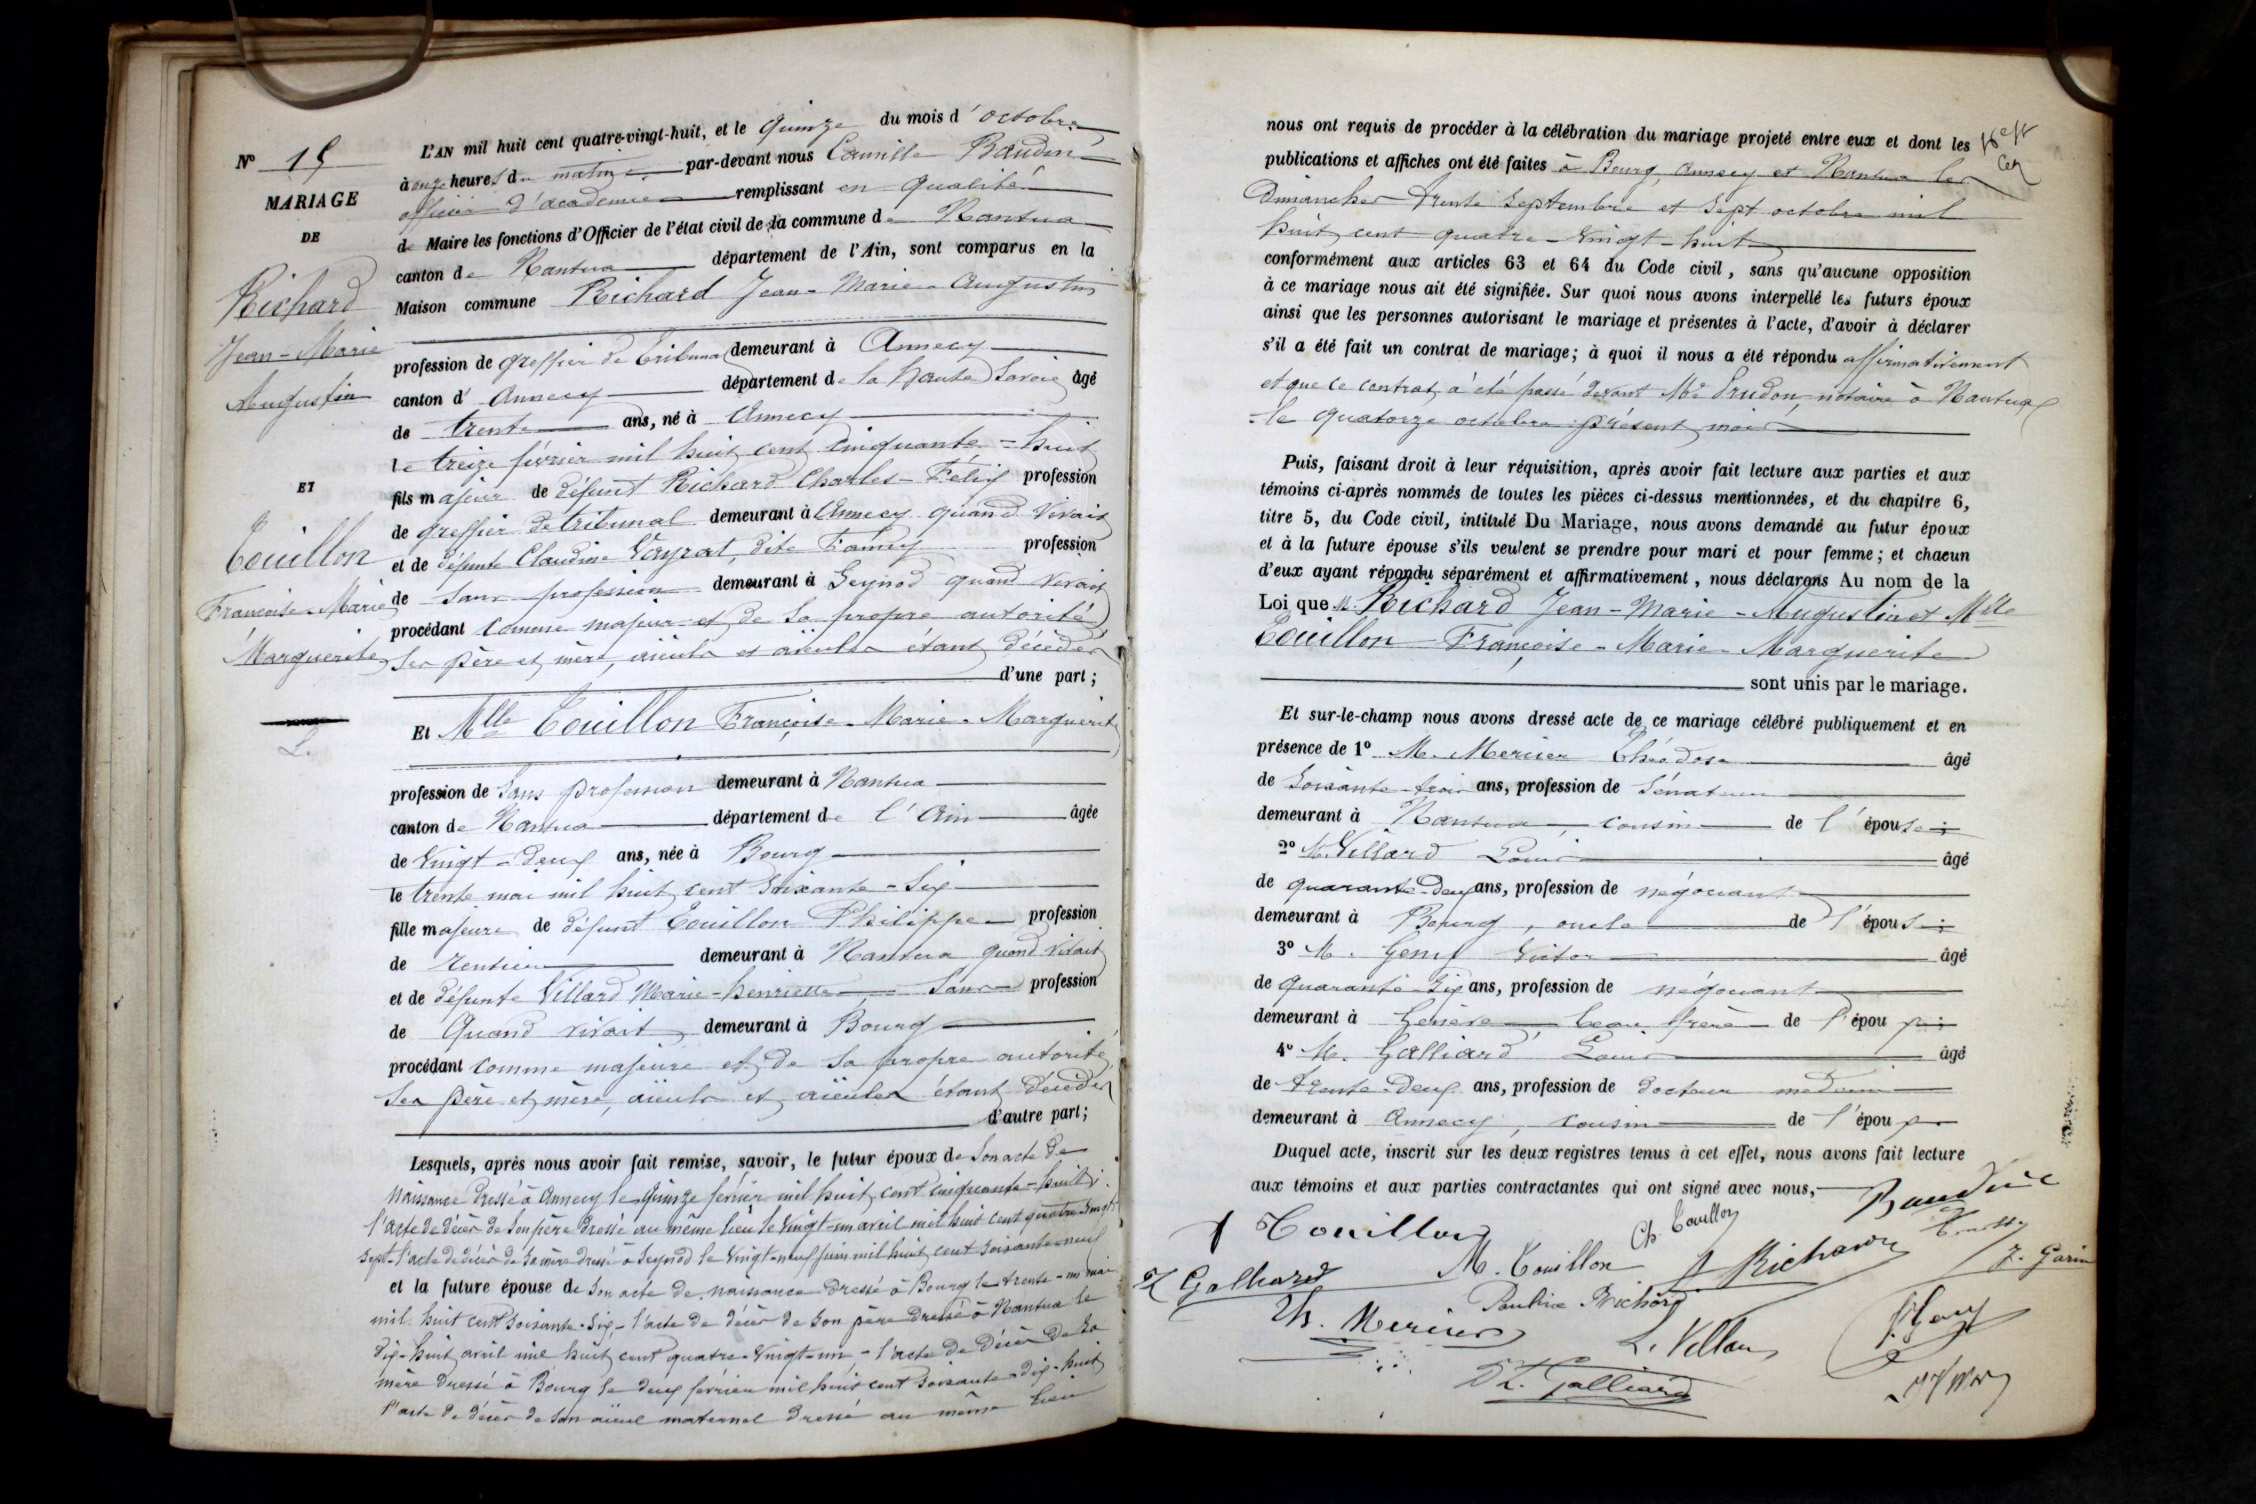 N° 15
MARIAGE
DE
Richard
Jean-Marie
Augustin
ET
Touillon
Françoise-Marie
Marguerite
L'AN mil huit cent quatre-vingt-huit, et le quinze du mois d'octobre
à onze heures du matin par-devant nous Camille Baudin
officier d'académie remplissant en qualité
de Maire les fonctions d'Officier de l'état civil de la commune de Nantua
canton de Nantua département de l'Ain, sont comparus en la
Maison commune Richard Jean-Marie-Augustin
profession de greffier de tribunal demeurant à Annecy
canton d'Annecy département de la Haute Savoie âgé
de trente ans, né à Annecy
le treize février mil huit cent cinquante-huit
fils majeur de défunt Richard Charles-Félix profession
de greffier de tribunal demeurant à Annecy quand vivait
et de défunte Claudine Vayrat, dite Fanny profession
de sans profession demeurant à Seynod quand vivait
procédant comme majeur et de sa propre autorité
ses père et mère, aïeuls et aïeules étant décédés
d'une part ;
Et Mlle Touillon Françoise-Marie-Marguerite
profession de sans profession demeurant à Nantua
canton de Nantua département de l'Ain âgée
de vingt-deux ans, née à Bourg
le trente mai mil huit cent soixante-six
fille majeure de défunt Touillon Philippe profession
de rentier demeurant à Nantua quand vivait
et de défunte Villard Marie-henriette, sans profession
de quand vivait demeurant à Bourg
procédant comme majeure et de sa propre autorité
ses père et mère, aïeuls et aïeules étant décédés
d'autre part ;
Lesquels, après nous avoir fait remise, savoir, le futur époux de son acte de
naissance dressé à Annecy le quinze février mil huit cent cinquante-huit;
l'acte de décès de son père dressé au même lieu le vingt-un avril mil huit cent quatre-vingt-
sept - l'acte de décès de sa mère dressé à Seynod le vingt-neuf juin mil huit cent soixante-neuf
et la future épouse de son acte de naissance dressé à Bourg le trente-un mai
mil huit cent soixante-six, - l'acte de décès de son père dressé à Nantua le
dix-huit avril mil huit cent quatre-vingt-un - l'acte de décès de sa
mère dressé à Bourg le deux février mil huit cent soixante-dix-huit
l'acte de décès de son aïeul maternel dressé au même lieu
nous ont requis de procéder à la célébration du mariage projeté entre eux et dont les
publications et affiches ont été faites à Bourg, Annecy et Nantua les
Dimanches trente Septembre et sept octobre mil
huit cent quatre-vingt-huit
conformément aux articles 63 et 64 du Code civil, sans qu'aucune opposition
à ce mariage nous ait été signifiée. Sur quoi nous avons interpellé les futurs époux
ainsi que les personnes autorisant le mariage et présentes à l'acte, d'avoir à déclarer
s'il a été fait un contrat de mariage ; à quoi il nous a été répondu affirmativement
et que ce contrat a été passé devant Me Prudon, notaire à Nantua
le quatorze octobre présent mois
Puis, faisant droit à leur réquisition, après avoir fait lecture aux parties et aux
témoins ci-après nommés de toutes les pièces ci-dessus mentionnées, et du chapitre 6,
titre 5, du Code civil, intitulé Du Mariage, nous avons demandé au futur époux
et à la future épouse s'ils veulent se prendre pour mari et pour femme ; et chacun
d'eux ayant répondu séparément et affirmativement, nous déclarons Au nom de la
Loi que M. Richard Jean-Marie-Augustin et Mlle
Touillon Françoise-Marie-Marguerite
sont unis par le mariage.
Et sur-le-champ nous avons dressé acte de ce mariage célébré publiquement et en
présence de 1° M. Mercier Théodose âgé
de soixante-trois ans, profession de Sénateur
demeurant à Nantua, cousin de l'épouse ;
2° M. Villard Louis âgé
de quarante-deux ans, profession de négociant
demeurant à Bourg, oncle de l'épouse ;
3° M. Geny Victor âgé
de quarante-six ans, profession de négociant
demeurant à Genève, beau frère de l'époux ;
4° M. Galliard Louis âgé
de trente-deux ans, profession de docteur médecin
demeurant à Annecy, cousin de l'époux
Duquel acte, inscrit sur les deux registres tenus à cet effet, nous avons fait lecture
aux témoins et aux parties contractantes qui ont signé avec nous,
Touillon
Ch. Touillon
Baudin
M. Touillon
Richard
J. Garin
Galliard
Pauline Richard
Th. Mercier
L. Villard
V. Geny
Dr L. Galliard